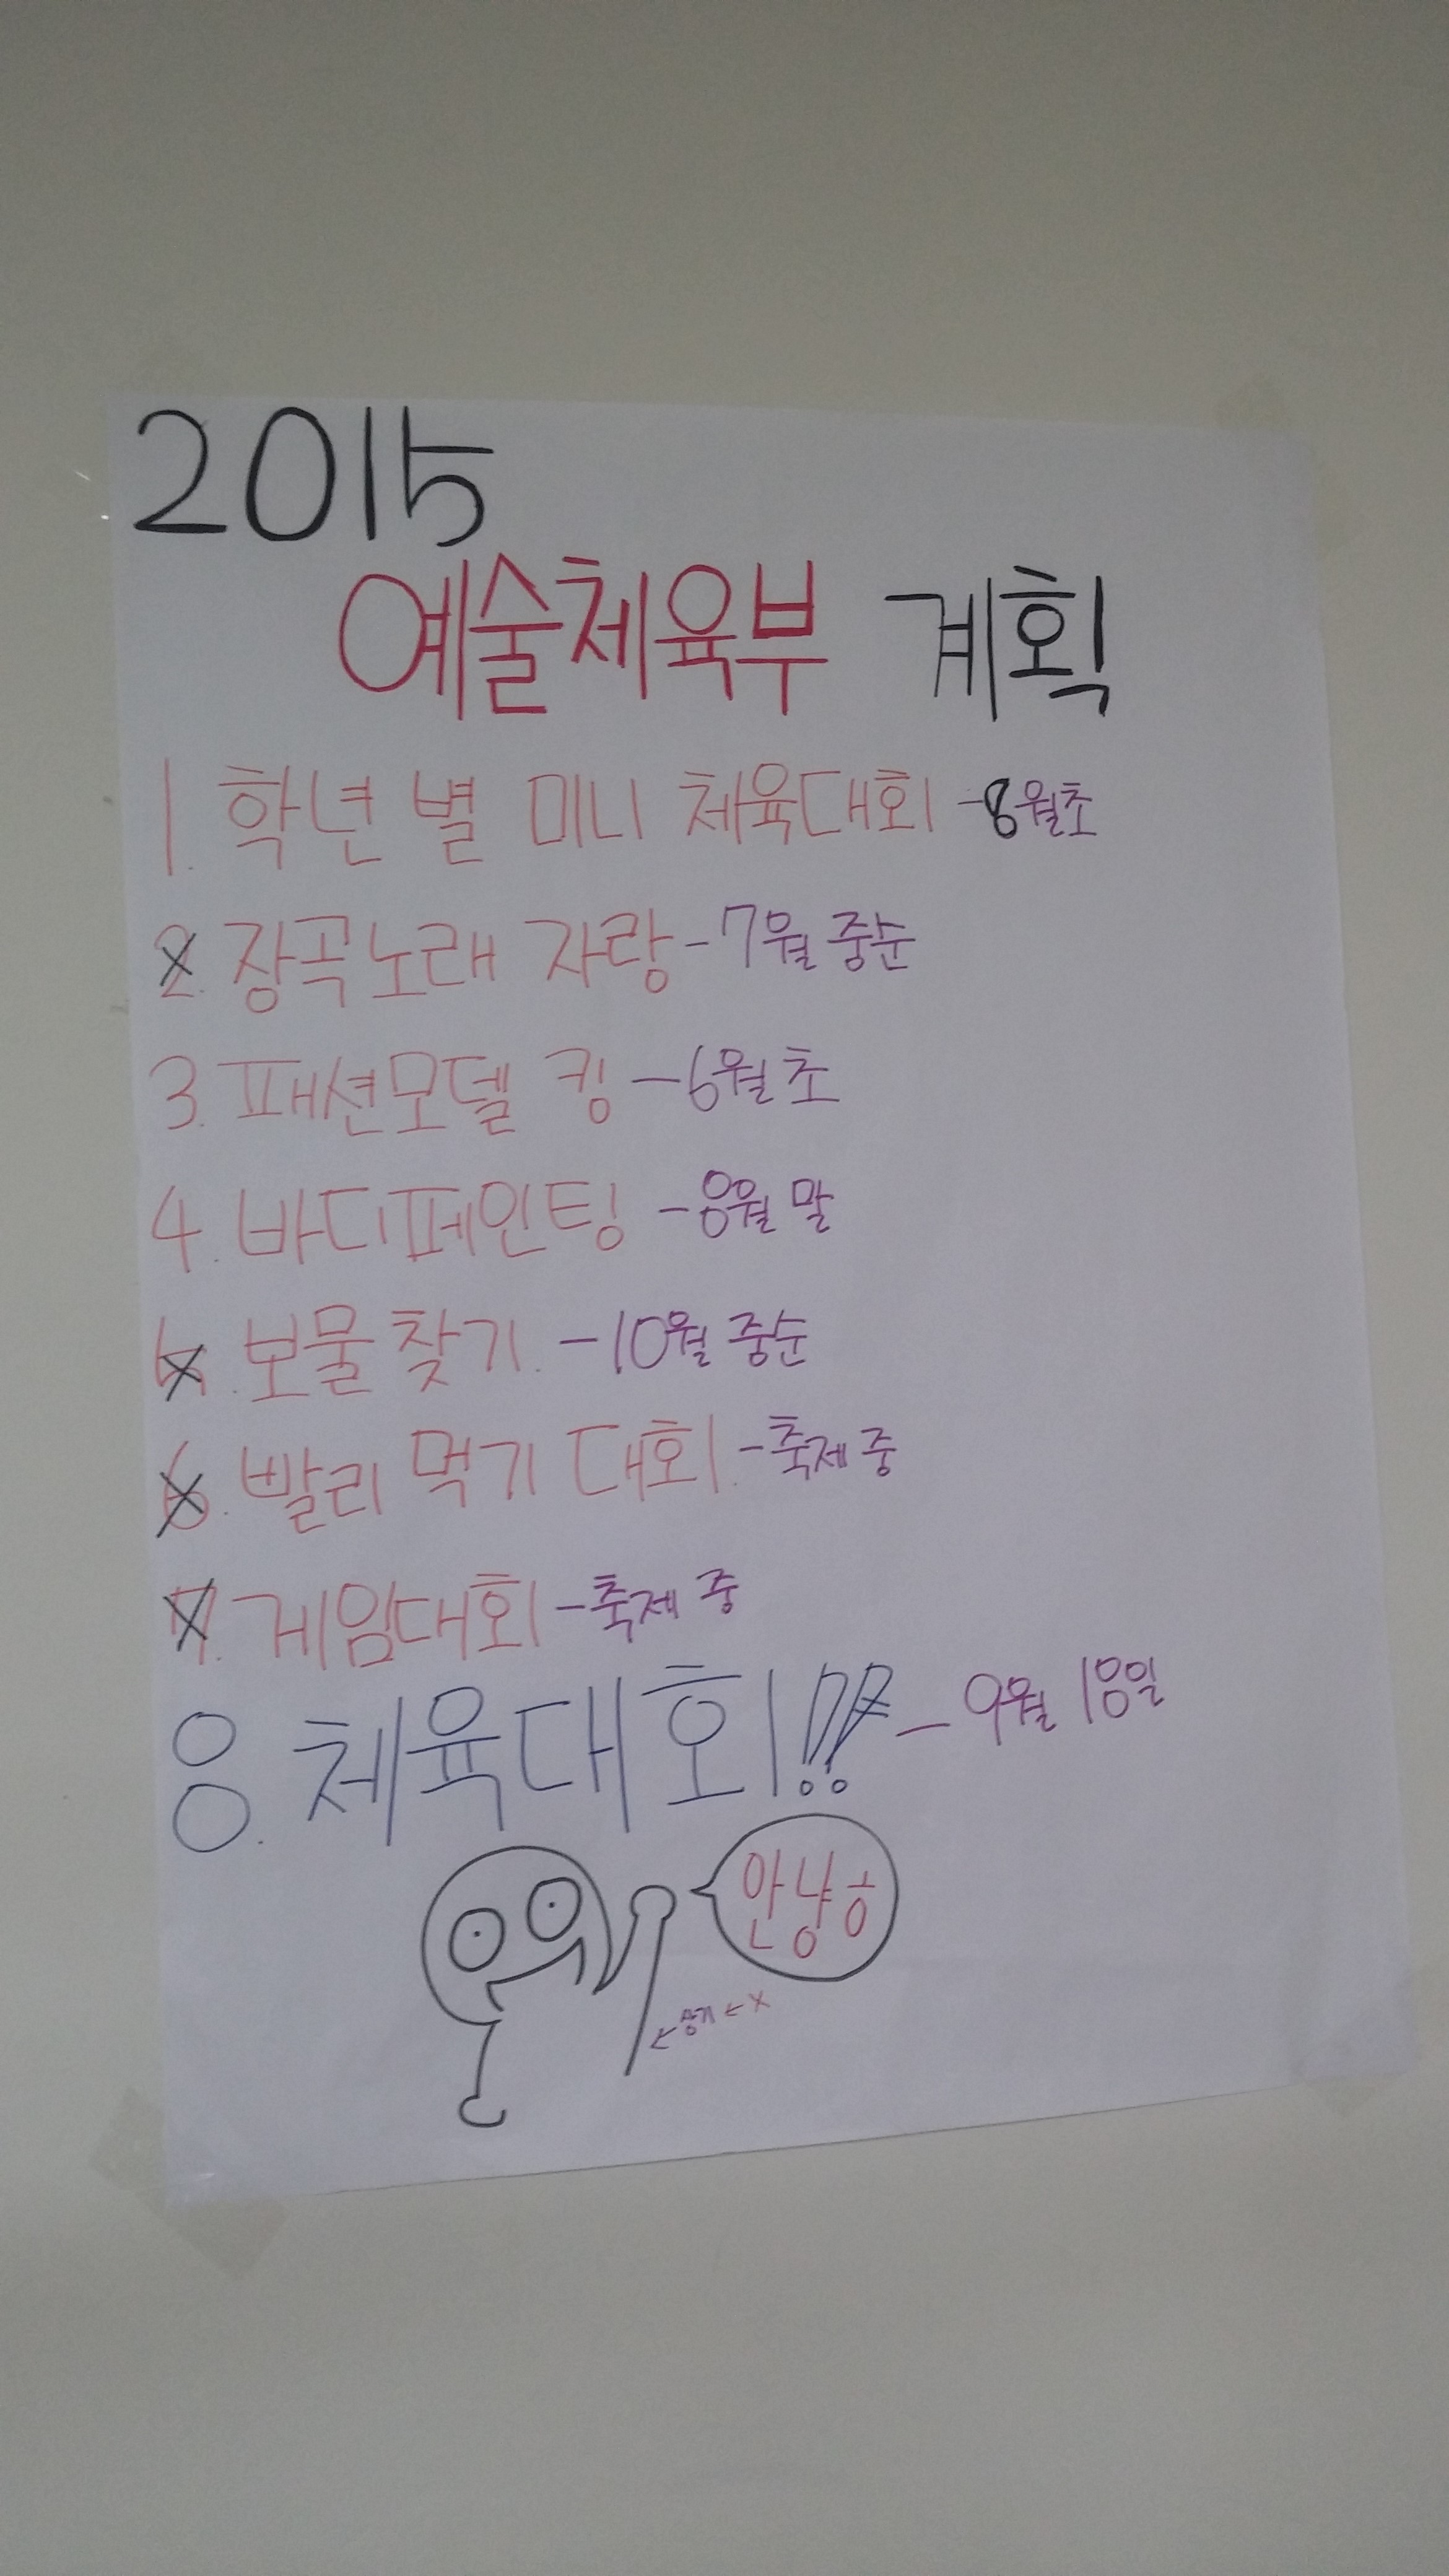 2015
예술체육부 계획
1. 학년별 미니 체육대회 - 8월초
2. 장곡노래 자랑 - 7월 중순
3. 패션모델 킹 - 6월 초
4. 바디페인팅 - 8월 말
5. 보물 찾기. - 10월 중순
6. 빨리 먹기 대회. - 축제 중
7. 게임대회 - 축제 중
8. 체육대회!! - 9월 18일
안냥ㅎ